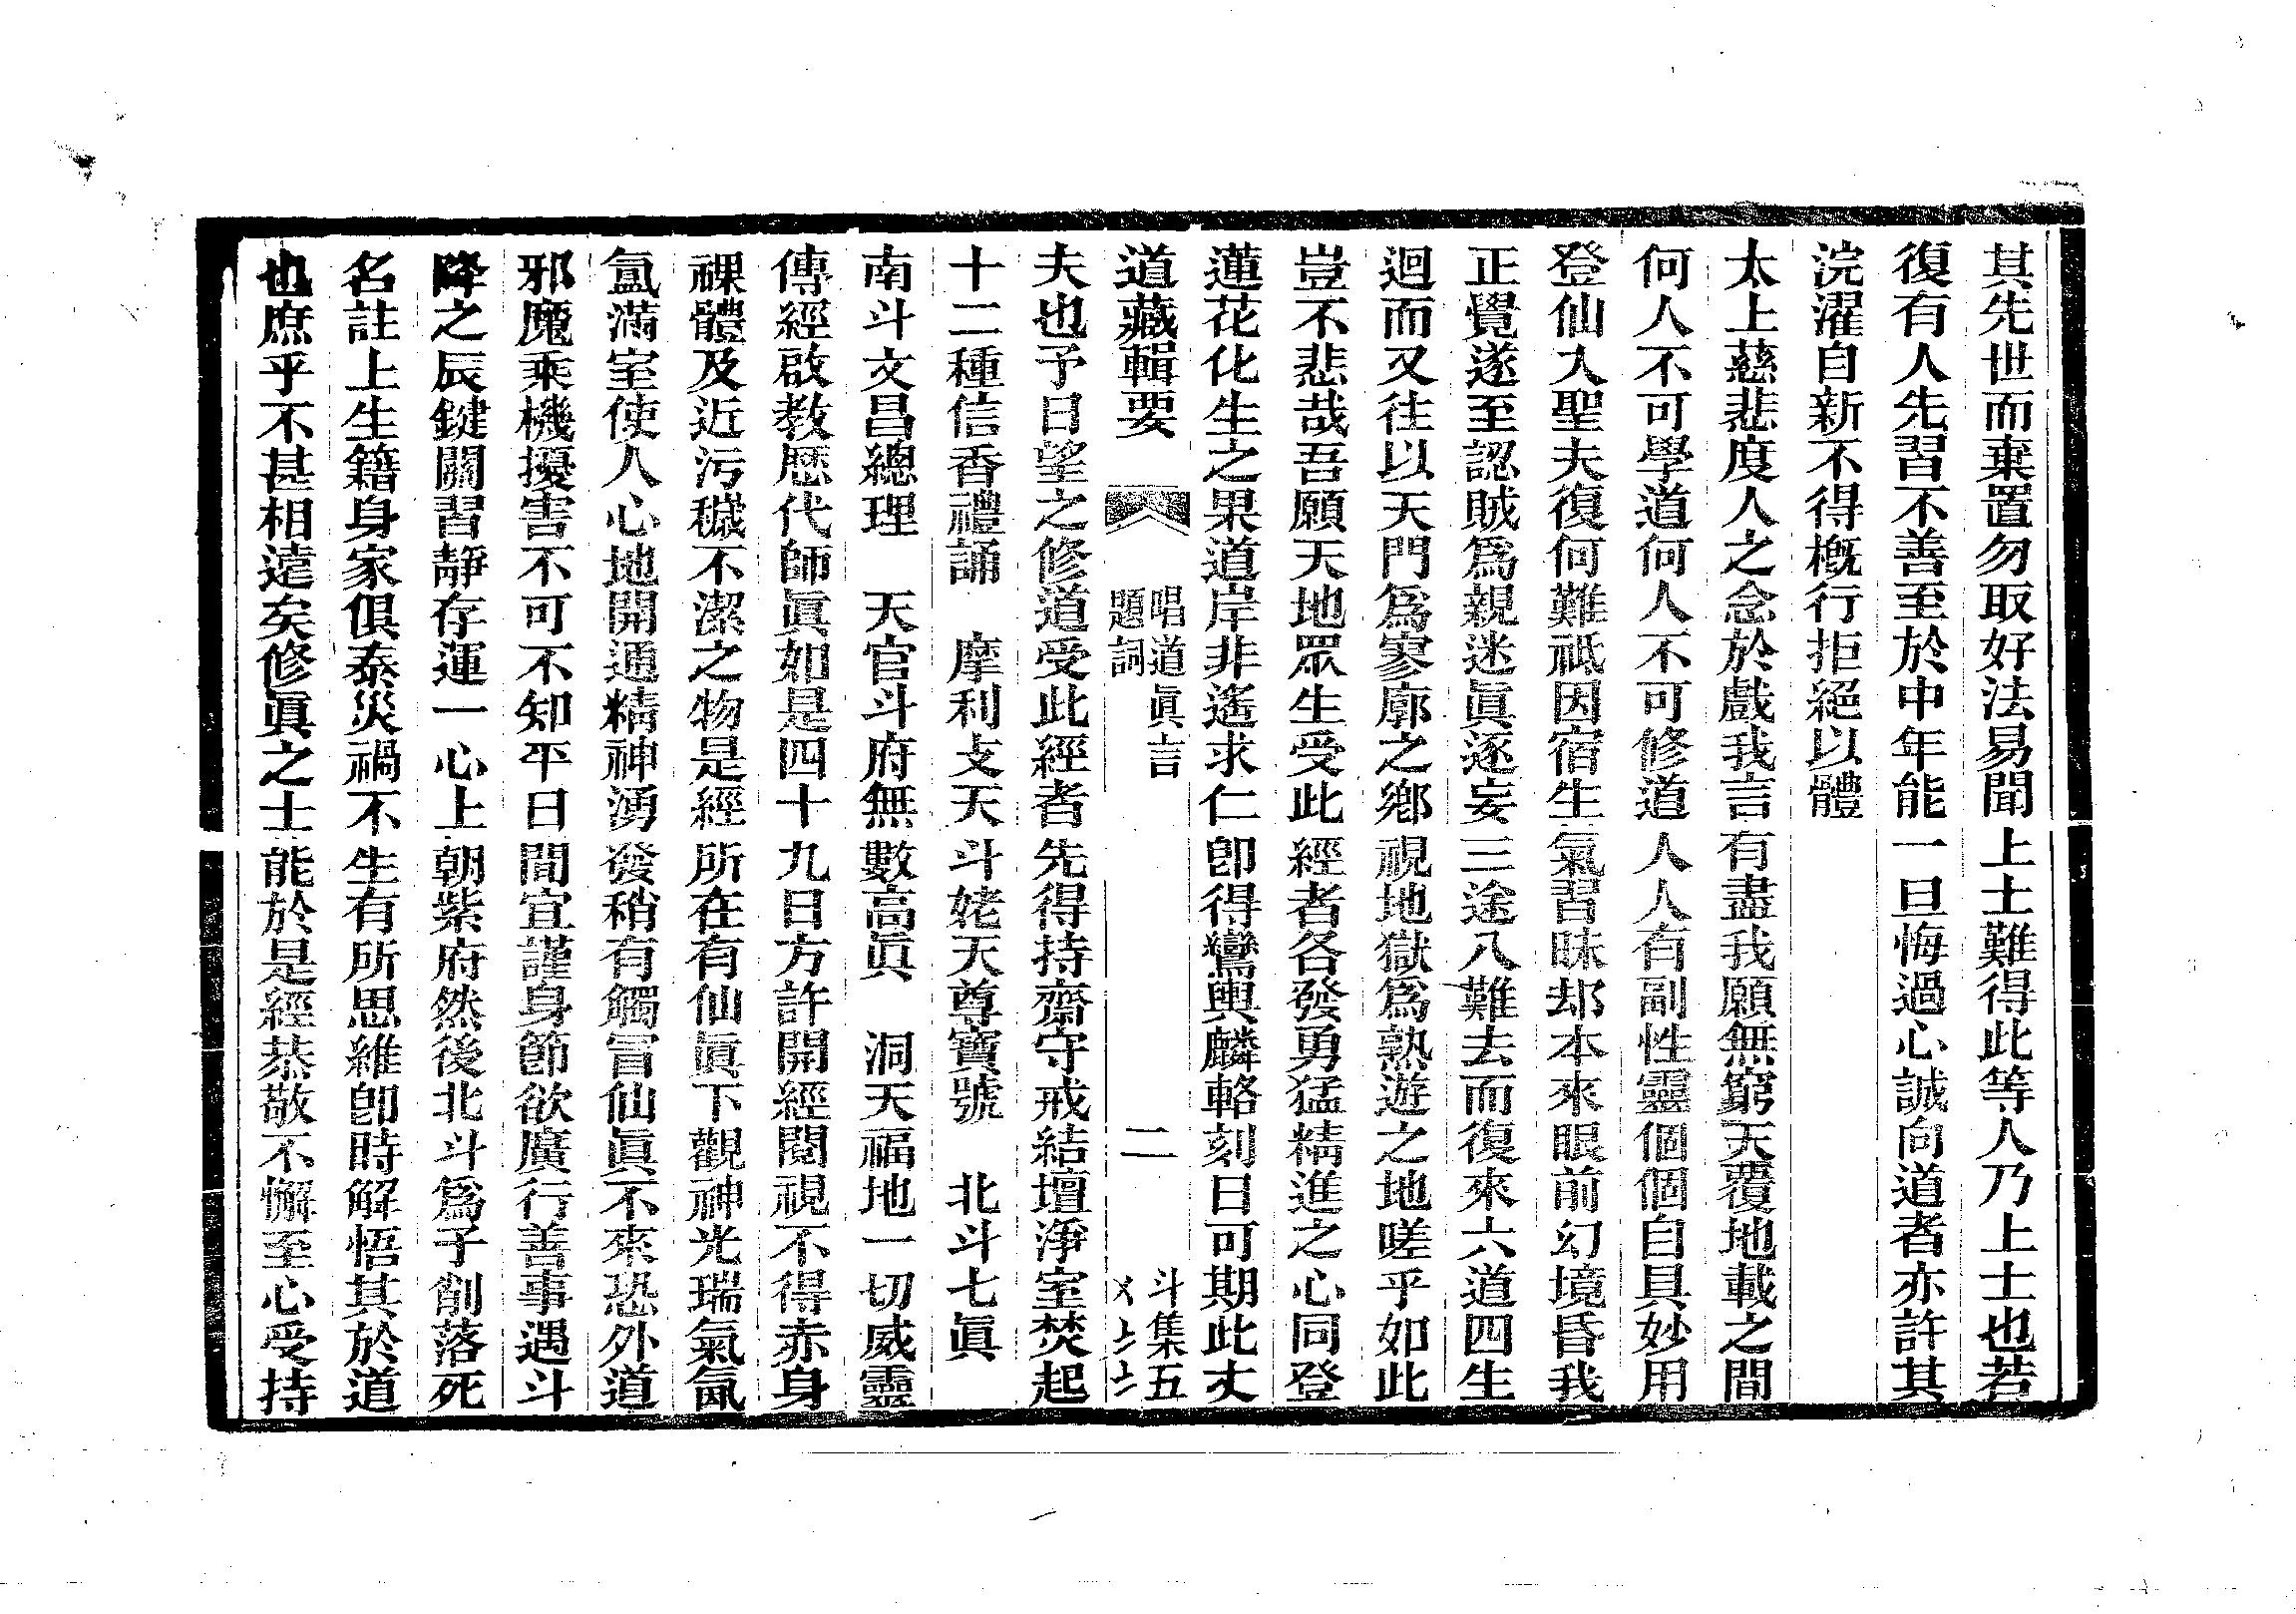 其先世而棄置勿取好法易聞上士難得此等人乃上士也若
復有人先習不善至於中年能一旦悔過心誠向道者亦許其
浣濯自新不得槪行拒絕以體
太上慈悲度人之念於戲我言有盡我願無窮天覆地載之間
何人不可學道何人不可修道人人有副性靈個個自具妙用
登仙入聖夫復何難祗因宿生氣習昧却本來眼前幻境昏我
正覺遂至認賊爲親迷眞逐妄三途八難去而復來六道四生
迴而又往以天門爲寥廓之鄕視地獄爲熟遊之地嗟乎如此
豈不悲哉吾願天地眾生受此經者各發勇猛精進之心同登
蓮花化生之果道岸非遙求仁卽得鸞輿麟輅刻日可期此丈
道藏輯要 唱道眞言 題詞 二 斗集五
夫也予日望之修道受此經者先得持齋守戒結壇淨室焚起
十二種信香禮誦 摩利支天斗姥天尊寶號 北斗七眞
南斗文昌總理 天官斗府無數高眞 洞天福地一切威靈
傳經啟教歷代師眞如是四十九日方許開經閱視不得赤身
裸體及近污穢不潔之物是經所在有仙眞下觀神光瑞氣氤
氳滿室使人心地開通精神湧發稍有觸冒仙眞不來恐外道
邪魔乘機擾害不可不知平日間宜謹身節欲廣行善事遇斗
降之辰鍵關習靜存運一心上朝紫府然後北斗爲子削落死
名註上生籍身家俱泰災禍不生有所思維卽時解悟其於道
也庶乎不甚相遠矣修眞之士能於是經恭敬不懈至心受持